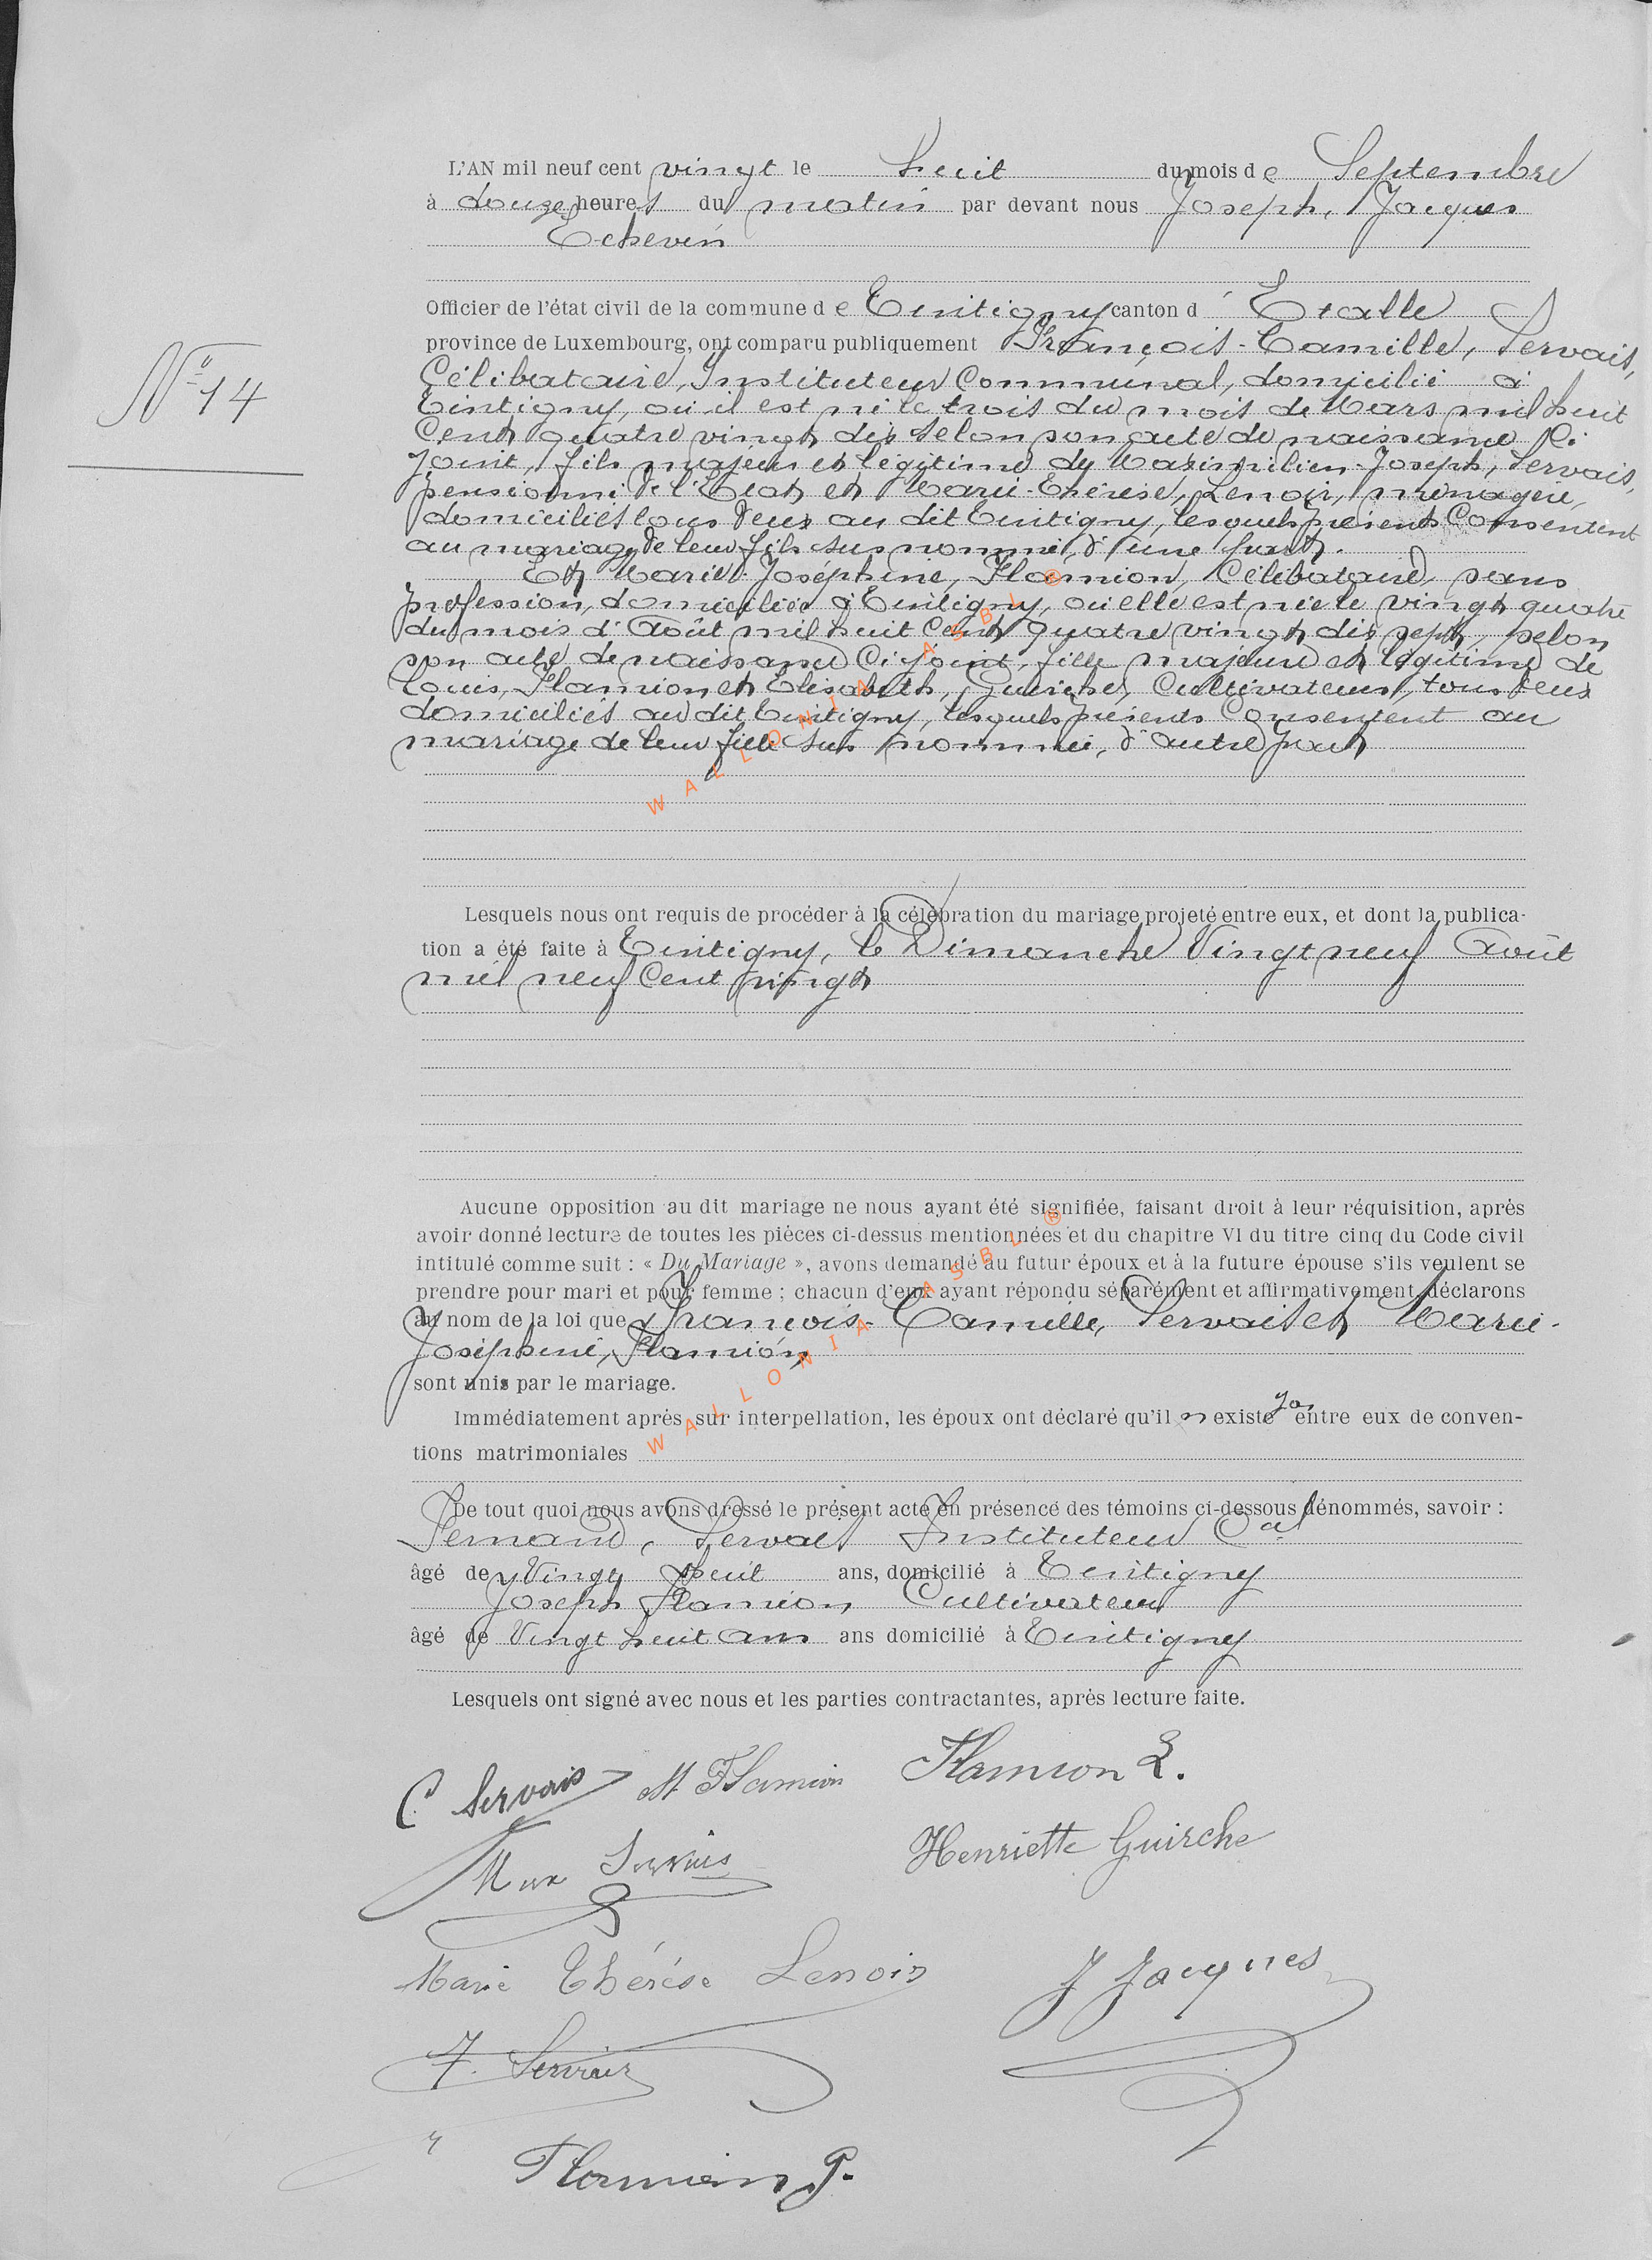 L'AN mil neuf cent vingt le huit du mois de Septembre
à douze heures du matin par devant nous Joseph, Jacques
Echevin
Officier de l'état civil de la commune de Tintigny canton d'Etalle
province de Luxembourg, ont comparu publiquement François-Camille, Servais,
Célibataire, Instituteur Communal, domicilié à
Tintigny, où il est né le trois du mois de Mars mil huit
Cent quatre vingt dix selon son acte de naissance Ci
joint, fils majeur et légitime de Maximilien-Joseph, Servais,
pensionné de l'Etat et Marie-Thérèse, Lenoir, ménagère,
domiciliés tous deux au dit Tintigny, lesquels présents Consentent
au mariage de leur fils sus nommé, d'une part.
Et Marie-Joséphine, Flamion, Célibataire, sans
profession, domiciliée à Tintigny, où elle est née le vingt quatre
du mois d'Août mil huit Cent quatre vingt dix sept, selon
son acte de naissance Ci joint, fille majeure et légitime de
Louis, Flamion et Elisabeth, Guirche, Cultivateurs, tous deux
domiciliés au dit Tintigny, lesquels présents Consentent au
mariage de leur fille sus nommée, d'autre part
Lesquels nous ont requis de procéder à la célébration du mariage projeté entre eux, et dont la publica-
tion a été faite à Tintigny, le Dimanche Vingt neuf Août
mil neuf Cent vingt
Aucune opposition au dit mariage ne nous ayant été signifiée, faisant droit à leur réquisition, après
avoir donné lecture de toutes les pièces ci-dessus mentionnées et du chapitre VI du titre cinq du Code civil
intitulé comme suit : « Du Mariage », avons demandé au futur époux et à la future épouse s'ils veulent se
prendre pour mari et pour femme ; chacun d'eux ayant répondu séparément et affirmativement, déclarons
au nom de la loi que François-Camille, Servais et Marie-
Joséphine, Flamion,
sont unis par le mariage.
Immédiatement après sur interpellation, les époux ont déclaré qu'il n existe pas entre eux de conven-
tions matrimoniales
De tout quoi nous avons dressé le présent acte en présence des témoins ci-dessous dénommés, savoir :
Fernand, Servais Instituteur Cal
âgé de Vingt huit ans, domicilié à Tintigny
Joseph Flamion, Cultivateur
âgé de Vingt huit ans ans domicilié à Tintigny
Lesquels ont signé avec nous et les parties contractantes, après lecture faite.
N° 14
C Servais M. Flamion Flamion L.
Max Servais Henriette Guirche
Marie Thérèse Lenoir J Jacques
F. Servais
Flamion J.
WALLONIA ASBL ®
WALLONIA ASBL ®